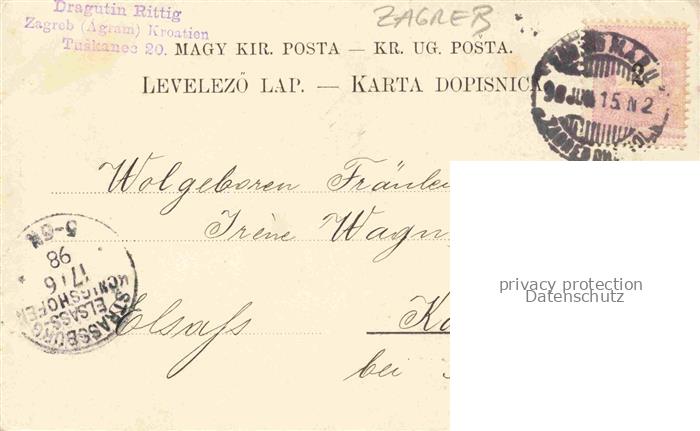 Dragutin Rittig
Zagreb (Agram) Kroatien
Tuškanec 20.
ZAGREB
MAGY KIR. POSTA — KR. UG. POŠTA.
LEVELEZŐ LAP. — KARTA DOPISNICA
98 JUN 15. N 2
Wolgeboren Fräulei
Irène Wagn
Elsaß
bei
STRASSBURG
ELSASS
KÖNIGSHOFEN
17 6
98
5-6N
privacy protection
Datenschutz